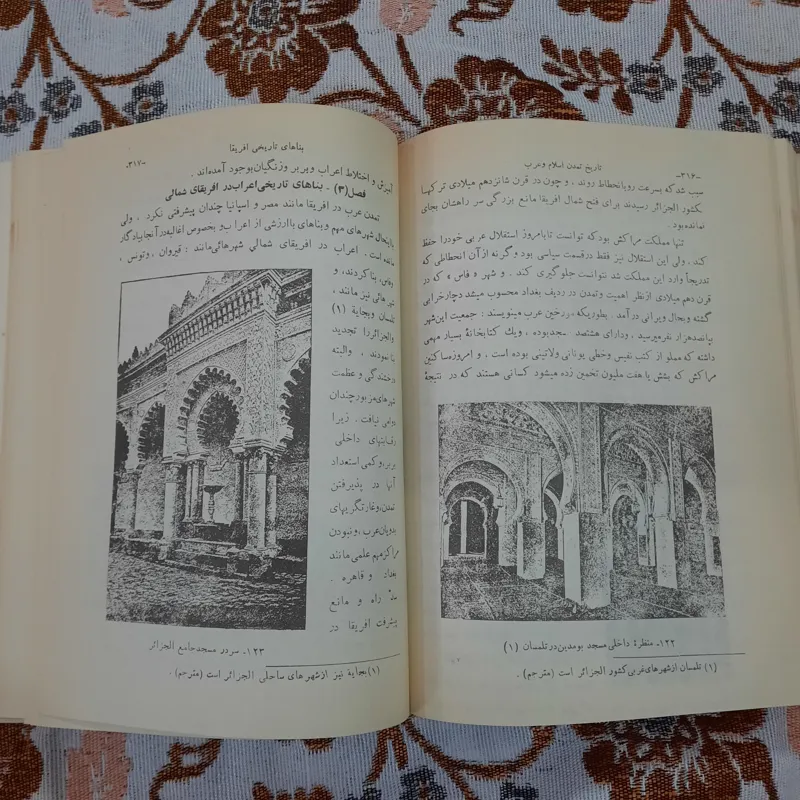 -۳۱۶-
تاریخ تمدن اسلام وعرب
سبب شدکه بسرعت روبانحطاط روند ، و چون در قرن شانزدهم میلادی ترکها
بکشور الجزائر رسیدند برای فتح شمال افریقا مانع بزرگی سر راهشان بجای
نمانده بود .
تنها مملکت مراکش بود که توانست تا بامروز استقلال عربی خود را حفظ
کند . ولی این استقلال نیز فقط درقسمت سیاسی بود و گرنه از آن انحطاطی که
تدریجاً وارد این مملکت شد نتوانست جلوگیری کند . و شهر « فاس » که در
قرن دهم میلادی از نظر اهمیت وتمدن در ردیف بغداد محسوب میشد دچار خرابی
گشته وبحال ویرانی در آمد . بطوریکه مورخین عرب مینویسند : جمعیت این شهر
پانصد هزار نفر میرسید ، ودارای هشتصد مسجد بوده ، ویك کتابخانهٔ بسیار مهمی
داشته که مملو از کتب نفیس وخطی یونانی ولاتینی بوده است ، و امروزه ساکنین
مراکش که بشش یا هفت ملیون تخمین زده میشود کسانی هستند که در نتیجهٔ
۱۲۲- منظرهٔ داخلی مسجد بومدین در تلمسان (۱)
(۱) تلمسان از شهرهای غربی کشور الجزائر است (مترجم) .
بناهای تاریخی افریقا
-۳۱۷-
آمیزش و اختلاط اعراب وبربر وزنگیان بوجود آمده‌اند .
فصل (۳) - بناهای تاریخی اعراب در افریقای شمالی
تمدن عرب در افریقا مانند مصر و اسپانیا چندان پیشرفتی نکرد . ولی
بااینحال شهرهای مهم وبناهای باارزشی از اعراب و بخصوص اغالبه در آنجا بیادگار
مانده است . اعراب در افریقای شمالی شهرهائی مانند : قیروان ، وتونس ،
وفاس، بنا کردند، و
شهرهائی نیز مانند ،
تلمسان وبجایة (۱)
والجزائر را تجدید
بنا نمودند ، والبته
درخشندگی و عظمت
شهرهای مزبور چندان
دوامی نیافت . زیرا
رقابتهای داخلی
بربر، وکمی استعداد
آنها در پذیرفتن
تمدن، وغارتگریهای
بدویان عرب، ونبودن
مراکز مهم علمی مانند
بغداد و قاهره .
سدّ راه و مانع
پیشرفت افریقا در
۱۲۳- سردر مسجد جامع الجزائر
(۱) بجایة نیز از شهرهای ساحلی الجزائر است (مترجم) .